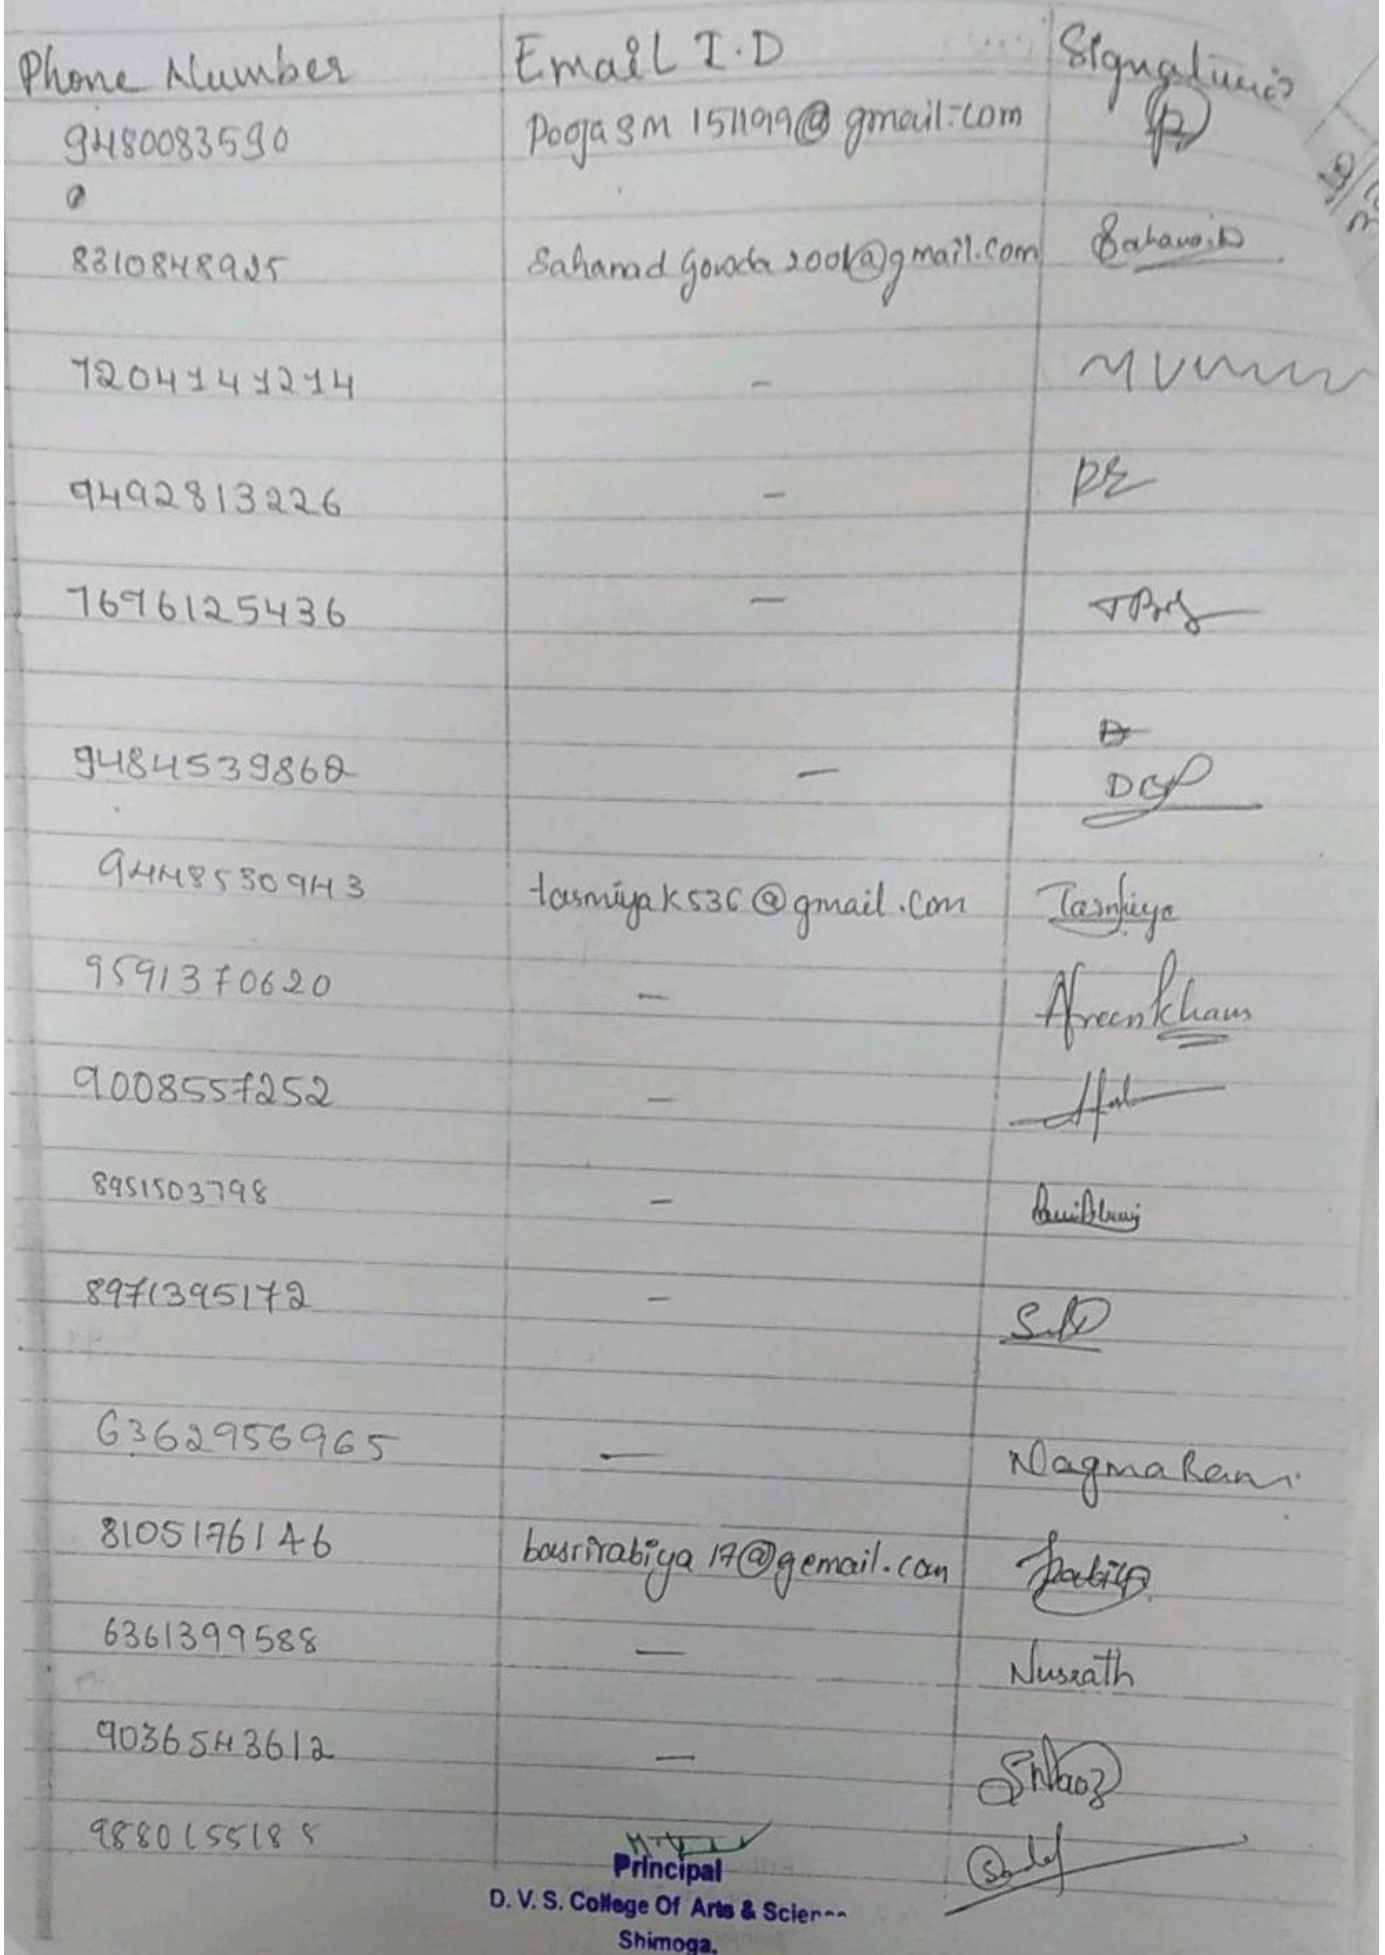 Phone Number Email I.D Signature's
9480083590 PoojaSM151199@gmail.com
8310848925 Sahanad Gowda 2001@gmail.com Sahana.D
7204141214 -
9492813226 -
7696125436 -
9484539862 -
9448530943 tasmiyak536@gmail.com Tasmiya
9591370620 - Afreen Khan
9008557252 -
8951503798 -
8971395172 -
6362956965 - Nagma Rani
8105176146 basrirabiya17@gemail.com Rabiya
6361399588 - Nusrath
9036543612 -
9880155185
Principal
D. V. S. College Of Arts & Scien
Shimoga.